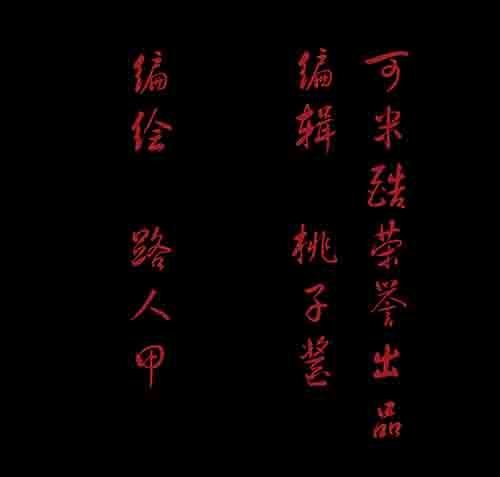 可米酷荣誉出品
编辑 桃子酱
编绘 路人甲